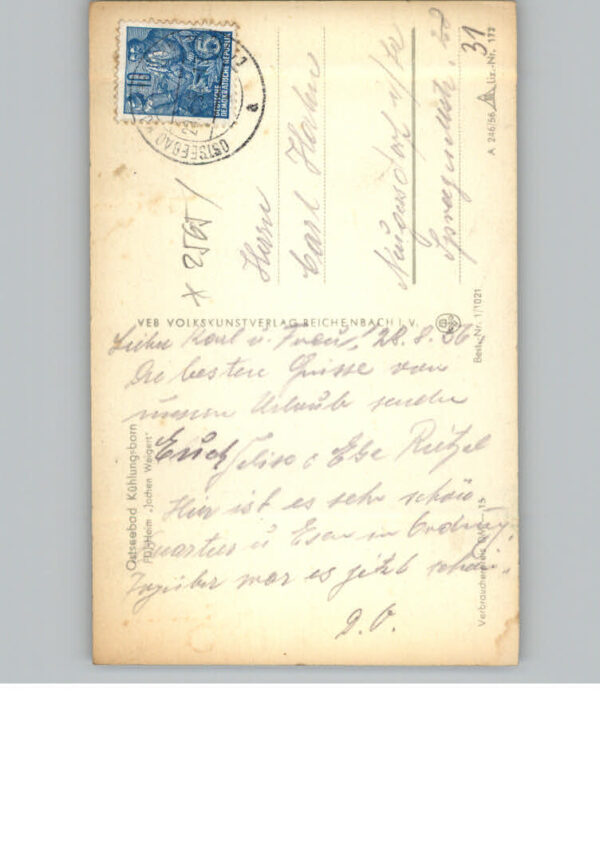 10
DEUTSCHE
DEMOKRATISCHE REPUBLIK
OSTSEEBAD
a
* 2565 /
Herrn
Carl Hahn
31
A 246/56 Liz.-Nr. 172
VEB VOLKSKUNSTVERLAG REICHENBACH I. V.
Best.-Nr. 1/1021
Ostseebad Kühlungsborn
FDJ-Heim „Jochen Weigert"
Verbraucherpreis DM —,15
Liebe Karl u. Frau! 28.8.56
Die besten Grüsse von
unserem Urlaub senden
Euch u Else
Hier ist es sehr schön
Quartier u Essen in Ordnung.
war es jetzt schön.
D. O.